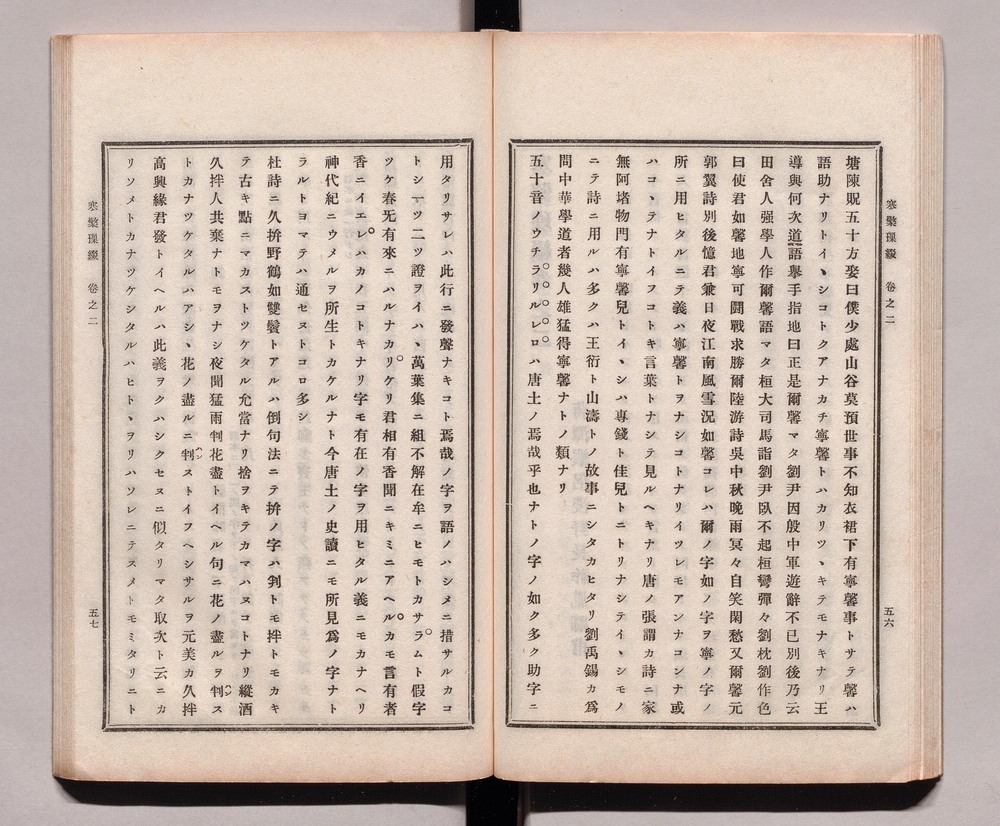 寒檠璅綴 卷之二
五六
塘陳貺五十方娶曰僕少處山谷莫預世事不知衣裙下有寧馨事トサテ馨ハ
語助ナリトイヽシコトクアナカチ寧馨トハカリツヽキテモナキナリ王
導與何次道語舉手指地曰正是爾馨マタ劉尹因殷中軍遊辭不已別後乃云
田舍人强學人作爾馨語マタ桓大司馬詣劉尹臥不起桓彎彈々劉枕劉作色
曰使君如馨地寧可鬪戰求勝爾陸游詩吳中秋晚雨冥々自笑閑愁又爾馨元
郭翼詩別後憶君兼日夜江南風雪況如馨コレハ爾ノ字如ノ字ヲ寧ノ字ノ
所ニ用ヒタルニテ義ハ寧馨トヲナシコトナリイツレモアンナコンナ或
ハコヽテナトイフコトキ言葉トナシテ見ルヘキナリ唐ノ張謂カ詩ニ家
無阿堵物門有寧馨兒トイヽシハ専錢ト佳兒トニトリナシテイヽシモノ
ニテ詩ニ用ルハ多クハ王衍ト山濤トノ故事ニシタカヒタリ劉禹錫カ爲
問中華學道者幾人雄猛得寧馨ナトノ類ナリ
五十音ノウチラリルレロハ唐土ノ焉哉乎也ナトノ字ノ如ク多ク助字ニ
用タリサレハ此行ニ發聲ナキコト焉哉ノ字ヲ語ノハシメニ措サルカコ
トシ一ツ二ツ證ヲイハヽ萬葉集ニ組不解在牟ニヒモトカサラムト假字
ツケ春旡有來ニハルナカリケリ君相有香聞ニキミニアヘルカモ言有者
香ニイエレハカノコトキナリ字モ有在ノ字ヲ用ヒタル義ニモカナヘリ
神代紀ニウメルヲ所生トカケルナト今唐土ノ史讀ニモ所見爲ノ字ナト
ラルトヨマテハ通セヌトコロ多シ
杜詩ニ久拚野鶴如雙鬢トアルハ倒句法ニテ拚ノ字ハ判トモ拌トモカキ
テ古キ點ニマカストツケタル允當ナリ捨ヲキテカマハヌコトナリ縱酒
久拌人共棄ナトモヲナシ夜聞猛雨判花盡トイヘル句ニ花ノ盡ルヲ判ス
トカナツケタルハアシヽ花ノ盡ルニ判ストイフヘシサルヲ元美カ久拌
高興緣君發トイヘルハ此義ヲクハシクセヌニ似タリマタ取次ト云ニカ
リソメトカナツケシタルハヒトヽヲリハソレニテスメトモミタリニト
寒檠璅綴 卷之二
五七